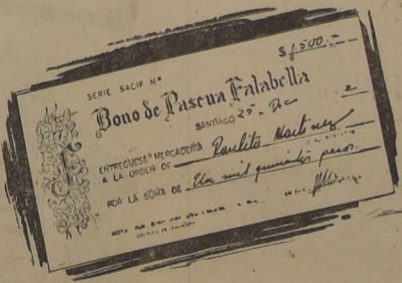 $ 1.500.-
SERIE SACIF Nº
Bono de Pascua Falabella
SANTIAGO 25 - Dc 2
ENTREGUESE MERCADERIA
A LA ORDEN DE Paulito Martinez
POR LA SUMA DE mil quinientos pesos.
NOTA